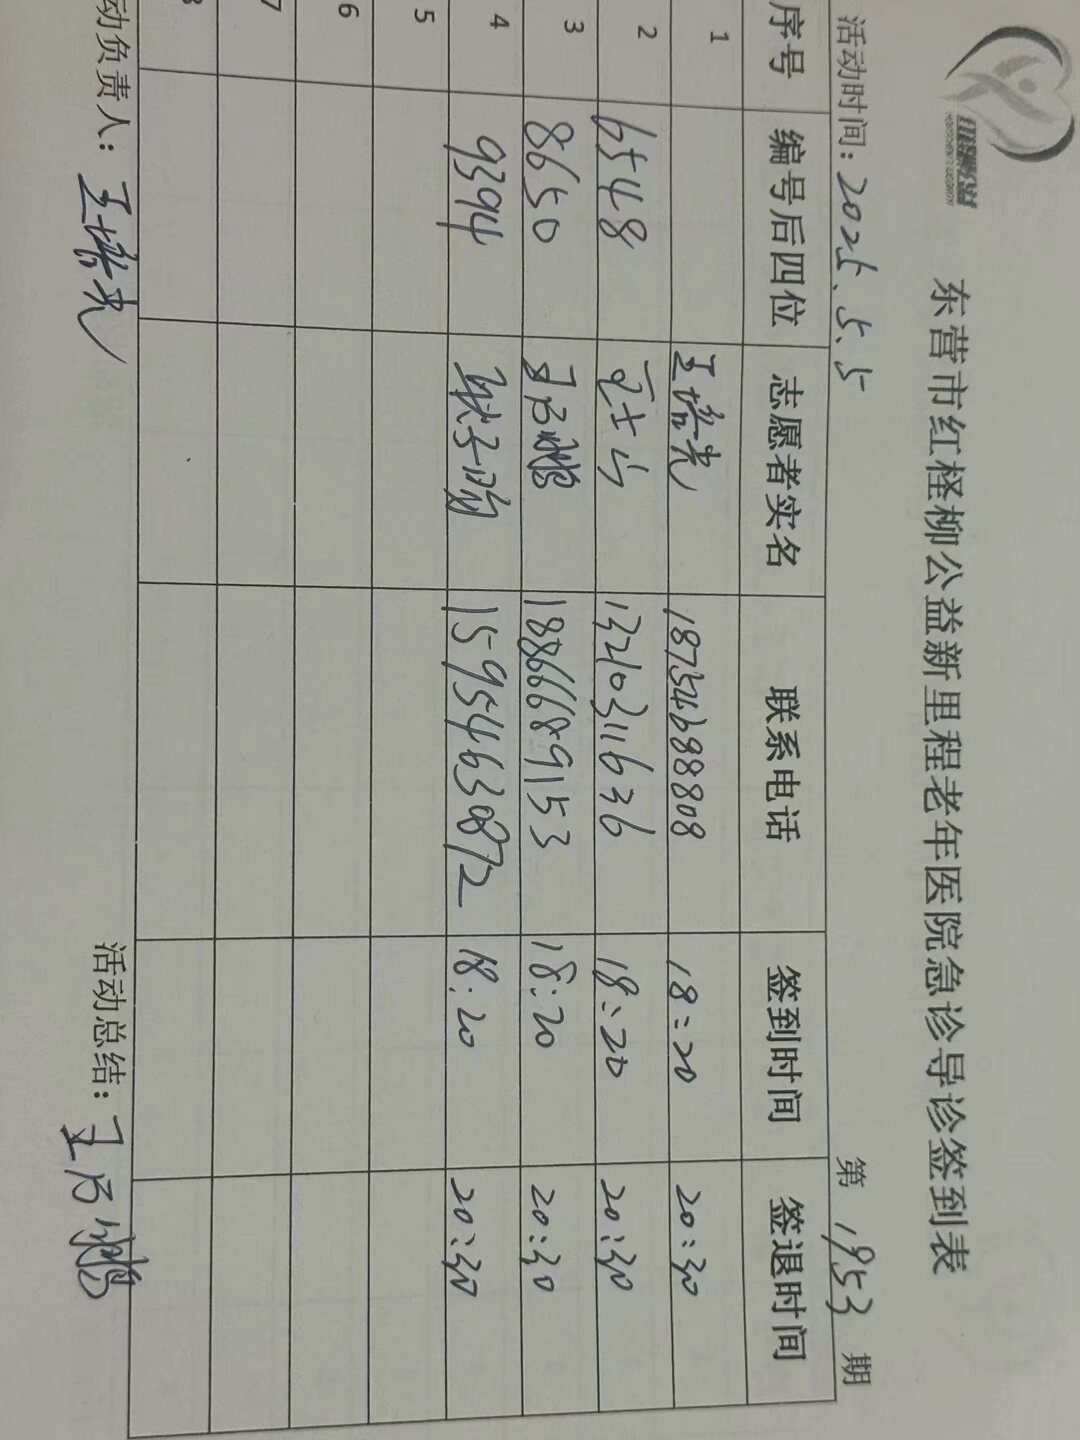 东营市红柽柳公益新里程老年医院急诊导诊签到表
活动时间：2025.5.5 第 1953 期
序号 编号后四位 志愿者实名 联系电话 签到时间 签退时间
1 王培光 18754688808 18:20 20:30
2 6548 13210311636 18:20 20:30
3 8650 18866689153 18:20 20:30
4 9394 15954630872 18:20 20:30
5
6
7
8
动负责人：王培光 活动总结：